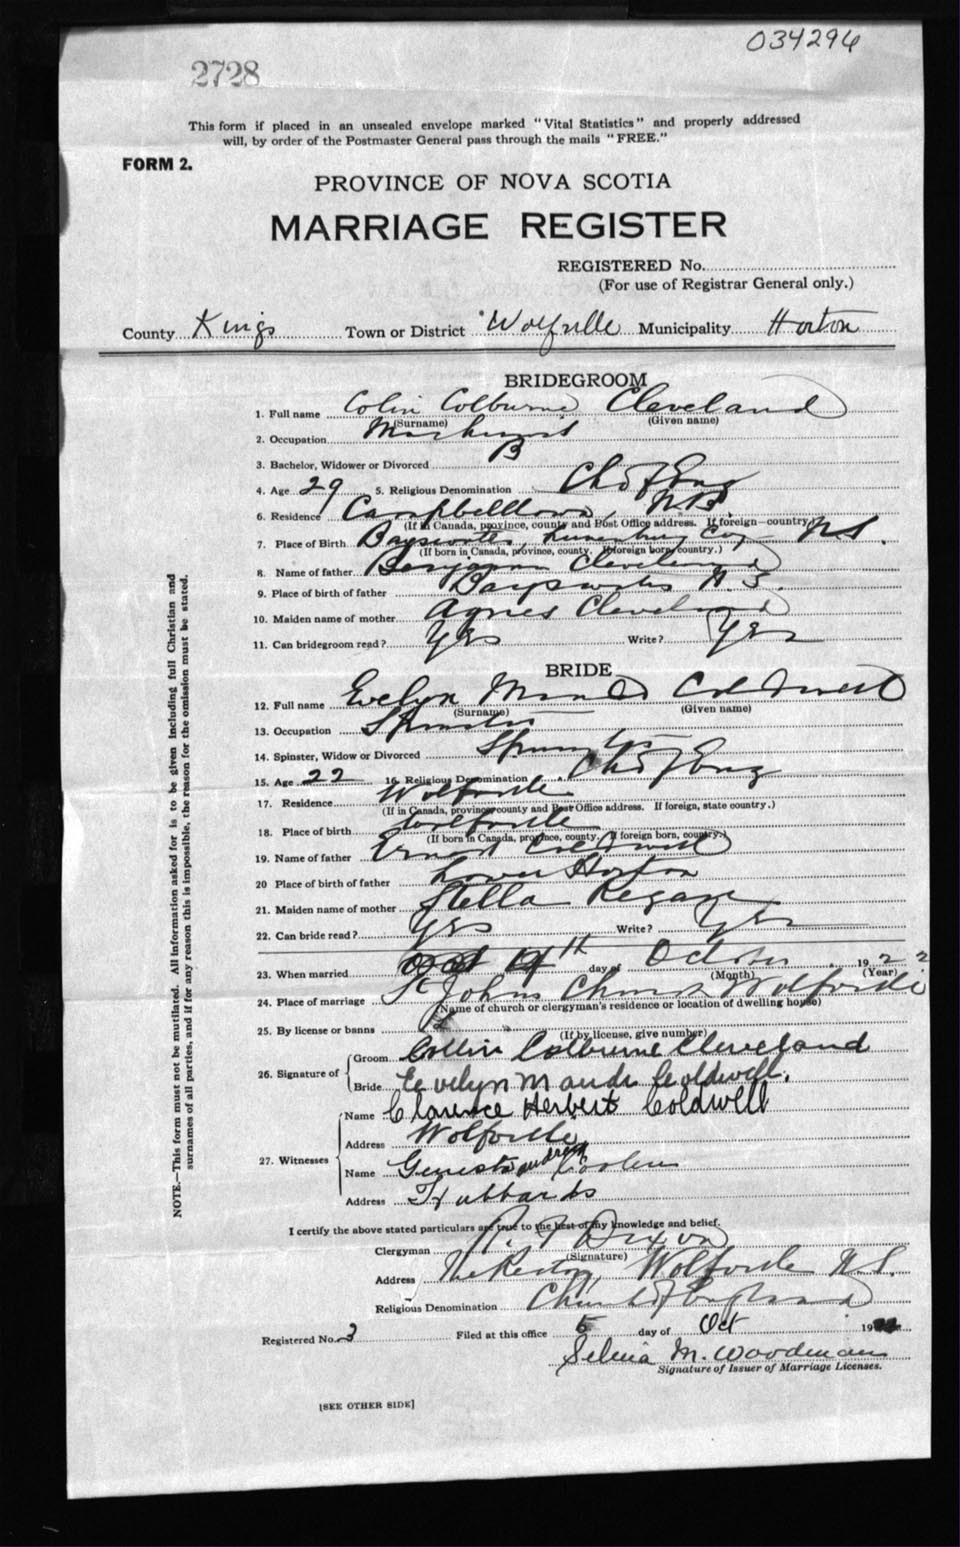 034296
2728
This form if placed in an unsealed envelope marked "Vital Statistics" and properly addressed
will, by order of the Postmaster General pass through the mails "FREE."
FORM 2.
PROVINCE OF NOVA SCOTIA
MARRIAGE REGISTER
REGISTERED No.
(For use of Registrar General only.)
County Kings Town or District Wolfville Municipality Horton
BRIDEGROOM
1. Full name Colin Colburne Cleveland
(Surname) (Given name)
2. Occupation
3. Bachelor, Widower or Divorced B
4. Age 29 5. Religious Denomination Ch of Eng
6. Residence Campbelltown, N.B.
(If in Canada, province, county and Post Office address. If foreign—country)
7. Place of Birth Bayswater, Lunenburg Coy N.S.
(If born in Canada, province, county. If foreign born, country.)
8. Name of father Benjamin Cleveland
9. Place of birth of father Bayswater N.S.
10. Maiden name of mother Agnes Cleveland
11. Can bridegroom read? Yes Write? Yes
BRIDE
12. Full name Evelyn Maude Coldwell
(Surname) (Given name)
13. Occupation Spinster
14. Spinster, Widow or Divorced Spinster
15. Age 22 16. Religious Denomination Ch of Eng
17. Residence Wolfville
(If in Canada, province county and Post Office address. If foreign, state country.)
18. Place of birth Wolfville
(If born in Canada, province, county. If foreign born, country.)
19. Name of father Ernest Coldwell
20 Place of birth of father Lower Horton
21. Maiden name of mother Stella Regan
22. Can bride read? Yes Write? Yes
23. When married 4th day of October 1922
(Month) (Year)
24. Place of marriage St Johns Church Wolfville
(Name of church or clergyman's residence or location of dwelling house)
25. By license or banns L
(If by license, give number)
26. Signature of
Groom Collin Colburne Cleveland
Bride Evelyn Maude Coldwell.
27. Witnesses
Name Clarence Herbert Coldwell
Address Wolfville
Name
Address Hubbards
I certify the above stated particulars are true to the best of my knowledge and belief.
Clergyman R. F. Dixon
(Signature)
Address The Rectory, Wolfville N.S.
Religious Denomination Church of England
Registered No. 3 Filed at this office 5 day of Oct 19
Selena M. Woodman
Signature of Issuer of Marriage Licenses.
[SEE OTHER SIDE]
NOTE.—This form must not be mutilated. All information asked for is to be given including full Christian and
surnames of all parties, and if for any reason this is impossible, the reason for the omission must be stated.